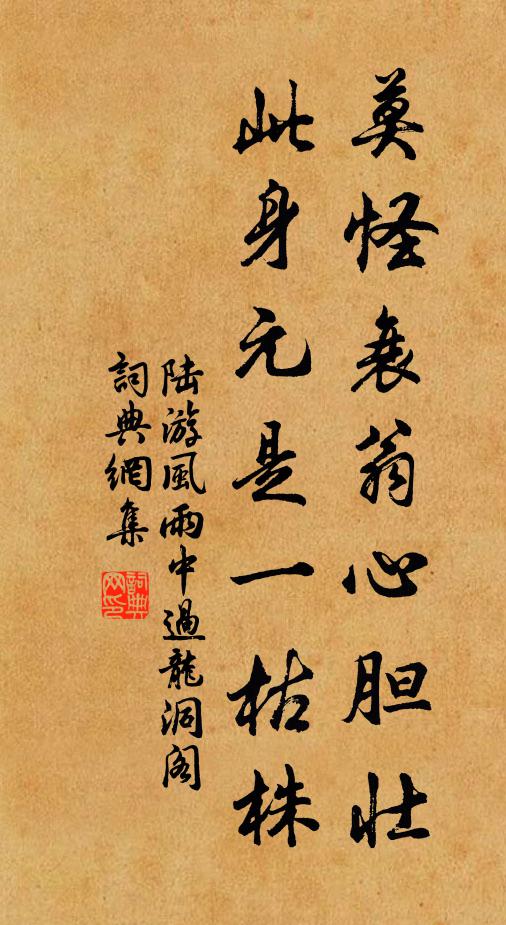 莫怪衰翁心胆壮
此身元是一枯株
陆游風雨中過龍洞阁
詞典網集
詞典网印